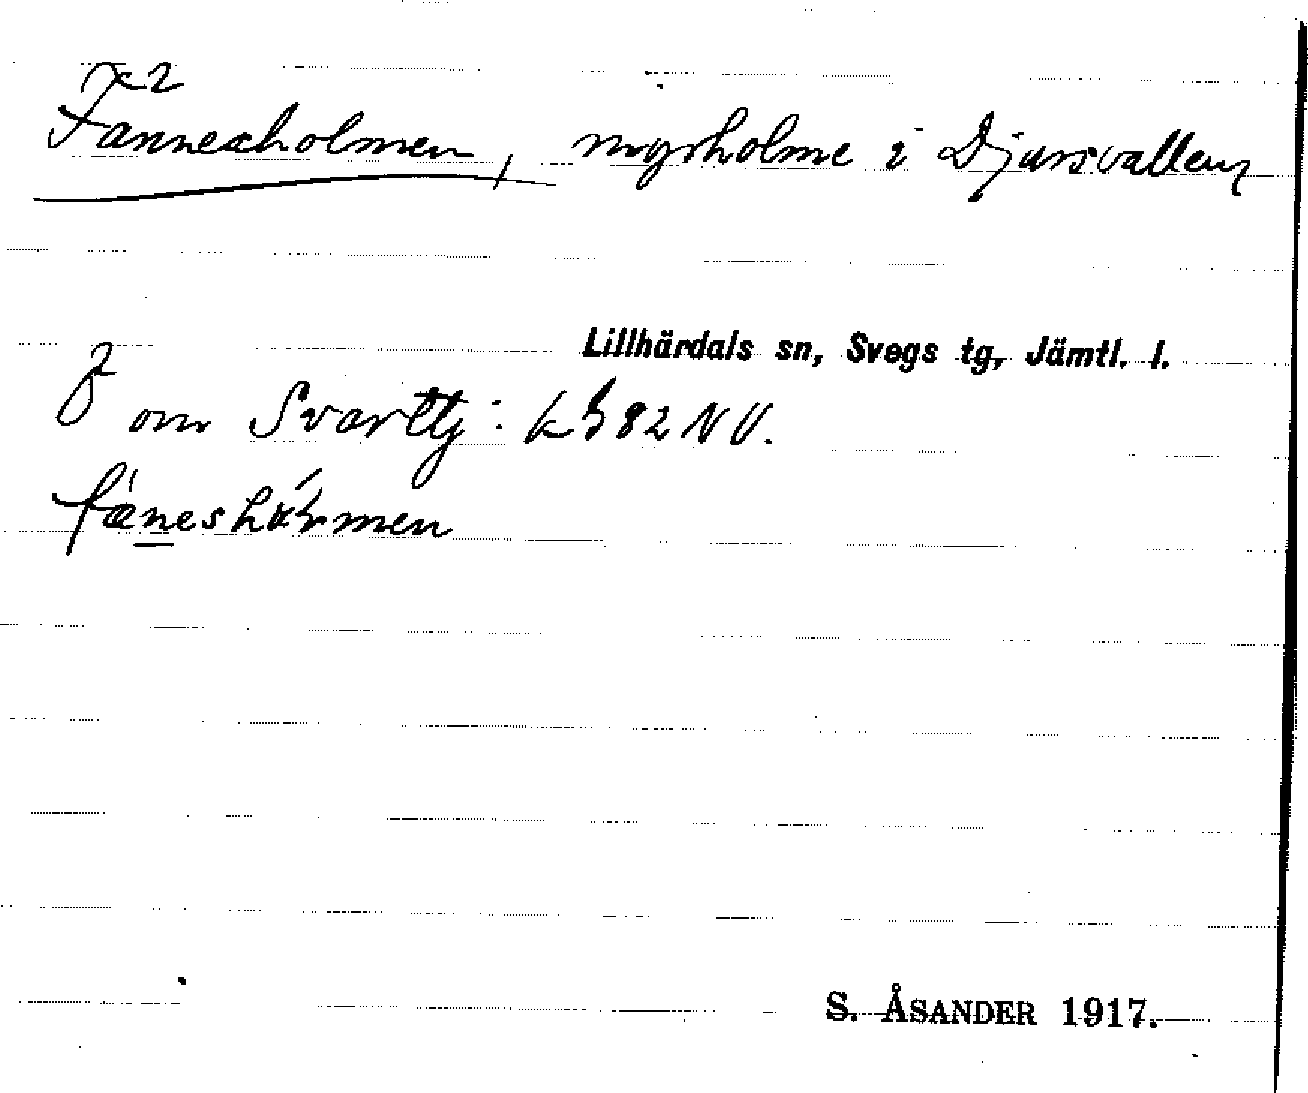 Fannesholmen, myrholme i Djursvallen
Lillhärdals sn, Svegs tg, Jämtl. l.
Ö om Svarttj: Lh 82 NV.
S. ÅSANDER 1917.